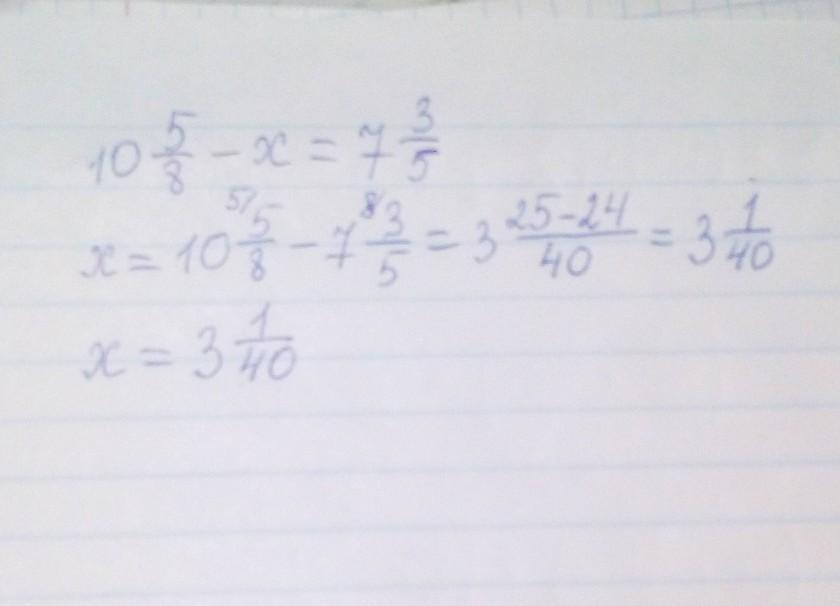 10 5/8 - x = 7 3/5
x = 10 ⁵⁾5/8 - 7 ⁸⁾3/5 = 3 25-24/40 = 3 1/40
x = 3 1/40